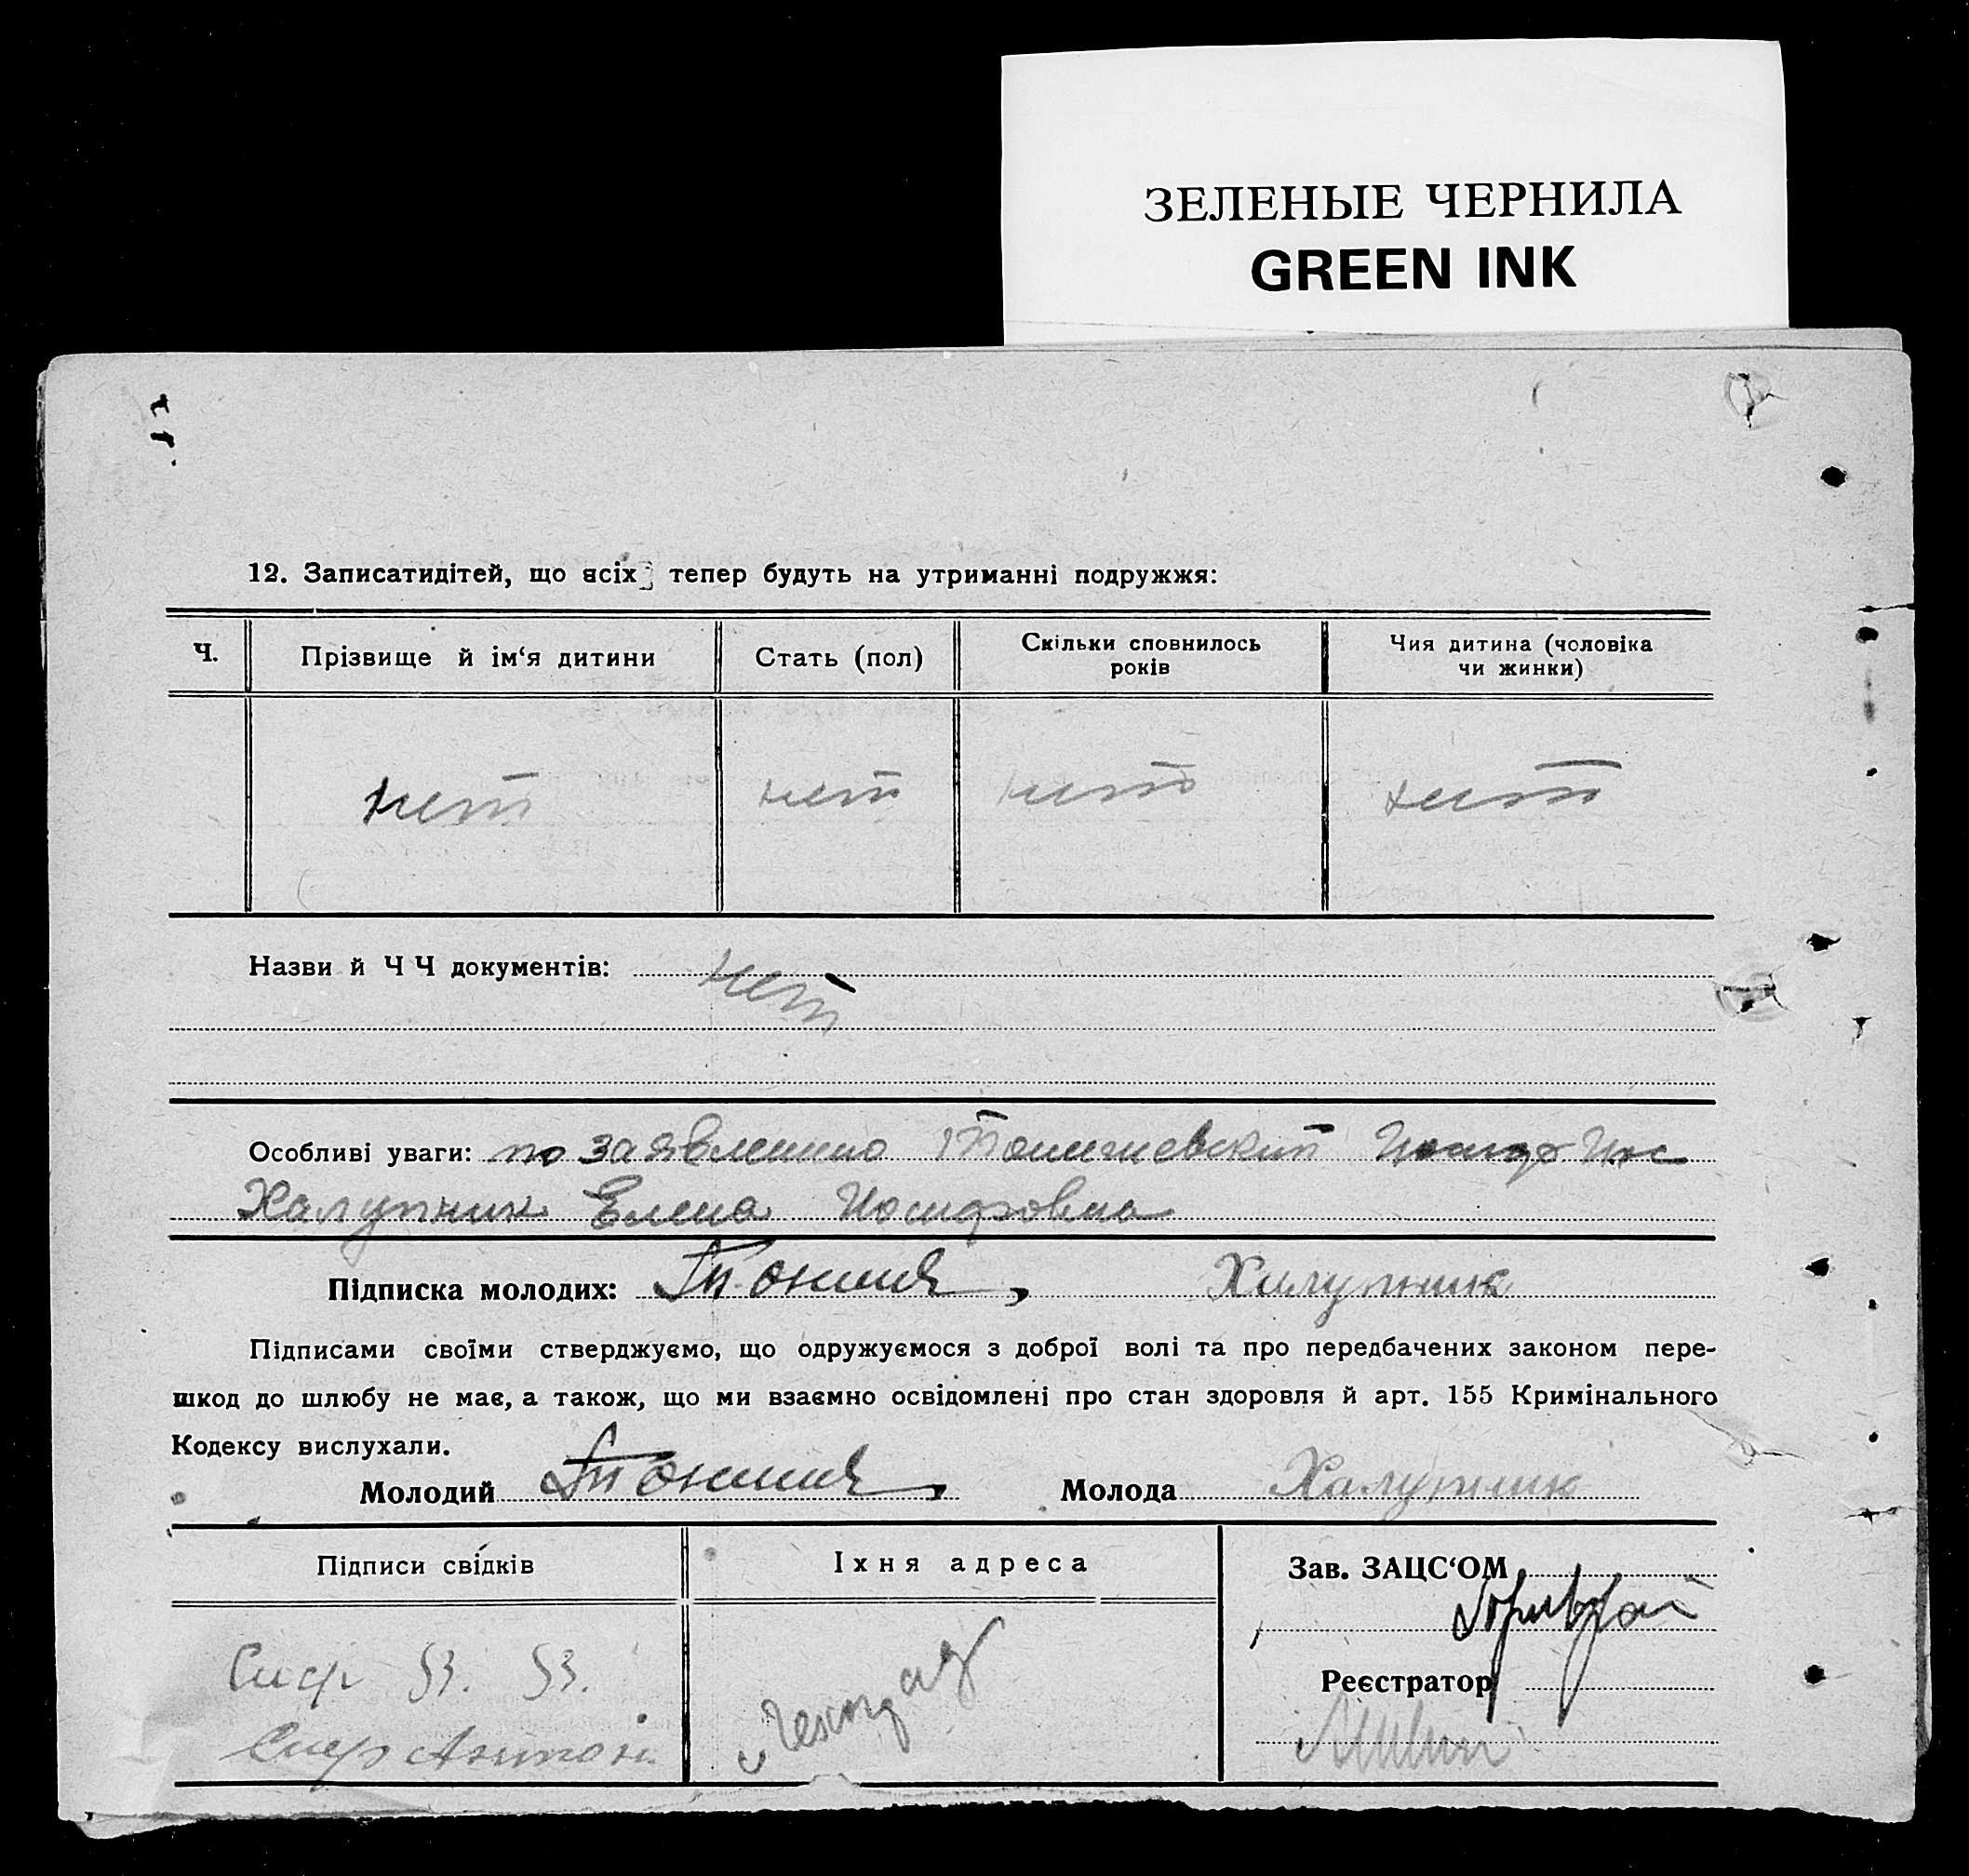 ЗЕЛЕНЫЕ ЧЕРНИЛА
GREEN INK
12. Записатидітей, що всіх тепер будуть на утриманні подружжя:
Ч. Прізвище й ім‘я дитини Стать (пол) Скільки сповнилось років Чия дитина (чоловіка чи жинки)
нет нет нет нет
Назви й Ч Ч документів: нет
Особливі уваги: по заявлению
Халупник Елена Иосифовна
Підписка молодих: Халупник
Підписами своїми стверджуємо, що одружуємося з доброї волі та про передбачених законом пере-
шкод до шлюбу не має, а також, що ми взаємно освідомлені про стан здоровля й арт. 155 Кримінального
Кодексу вислухали.
Молодий Молода Халупник
Підписи свідків Їхня адреса Зав. ЗАЦС‘ОМ
Реєстратор
Антон